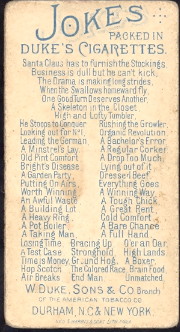 JOKES
PACKED IN
DUKE'S CIGARETTES.
Santa Claus has to furnish the Stockings.
Business is dull but he can't kick,
The Drama is making long strides,
When the Swallows homeward fly,
One Good Turn Deserves Another,
A Skeleton in the Closet,
High and Lofty Tumbler,
He Stoops to Conquer Rushing the Growler,
Looking out for No 1, Organic Revolution
Leading the German, A Bachelor's Error
A Minstrel's Lay A Regular Corker
Old Pint Comfort A Drop Too Much,
Bright's Disease Lying out of it
A Garden Party Dressed Beef
Putting On Airs Everything Goes
Worth Winning A Winning Way,
An Awful Waste A Tough Chick
A Building Lot A Great Rent
A Heavy Ring, Cold Comfort
A Pot Boiler, A Bare Chance
A Taking Man, A Full Hand,
Losing Time Bracing Up O'er an Oar.
A Test Case Stronghold High Lands
Time is Money Ground Hog, A Boxer,
Hop Scotch The Colored Race, Brain Food
Air Breaks End Man. Unmatched.
W. DUKE, SONS & CO. Branch
OF THE AMERICAN TOBACCO CO
DURHAM, N.C. & NEW YORK.